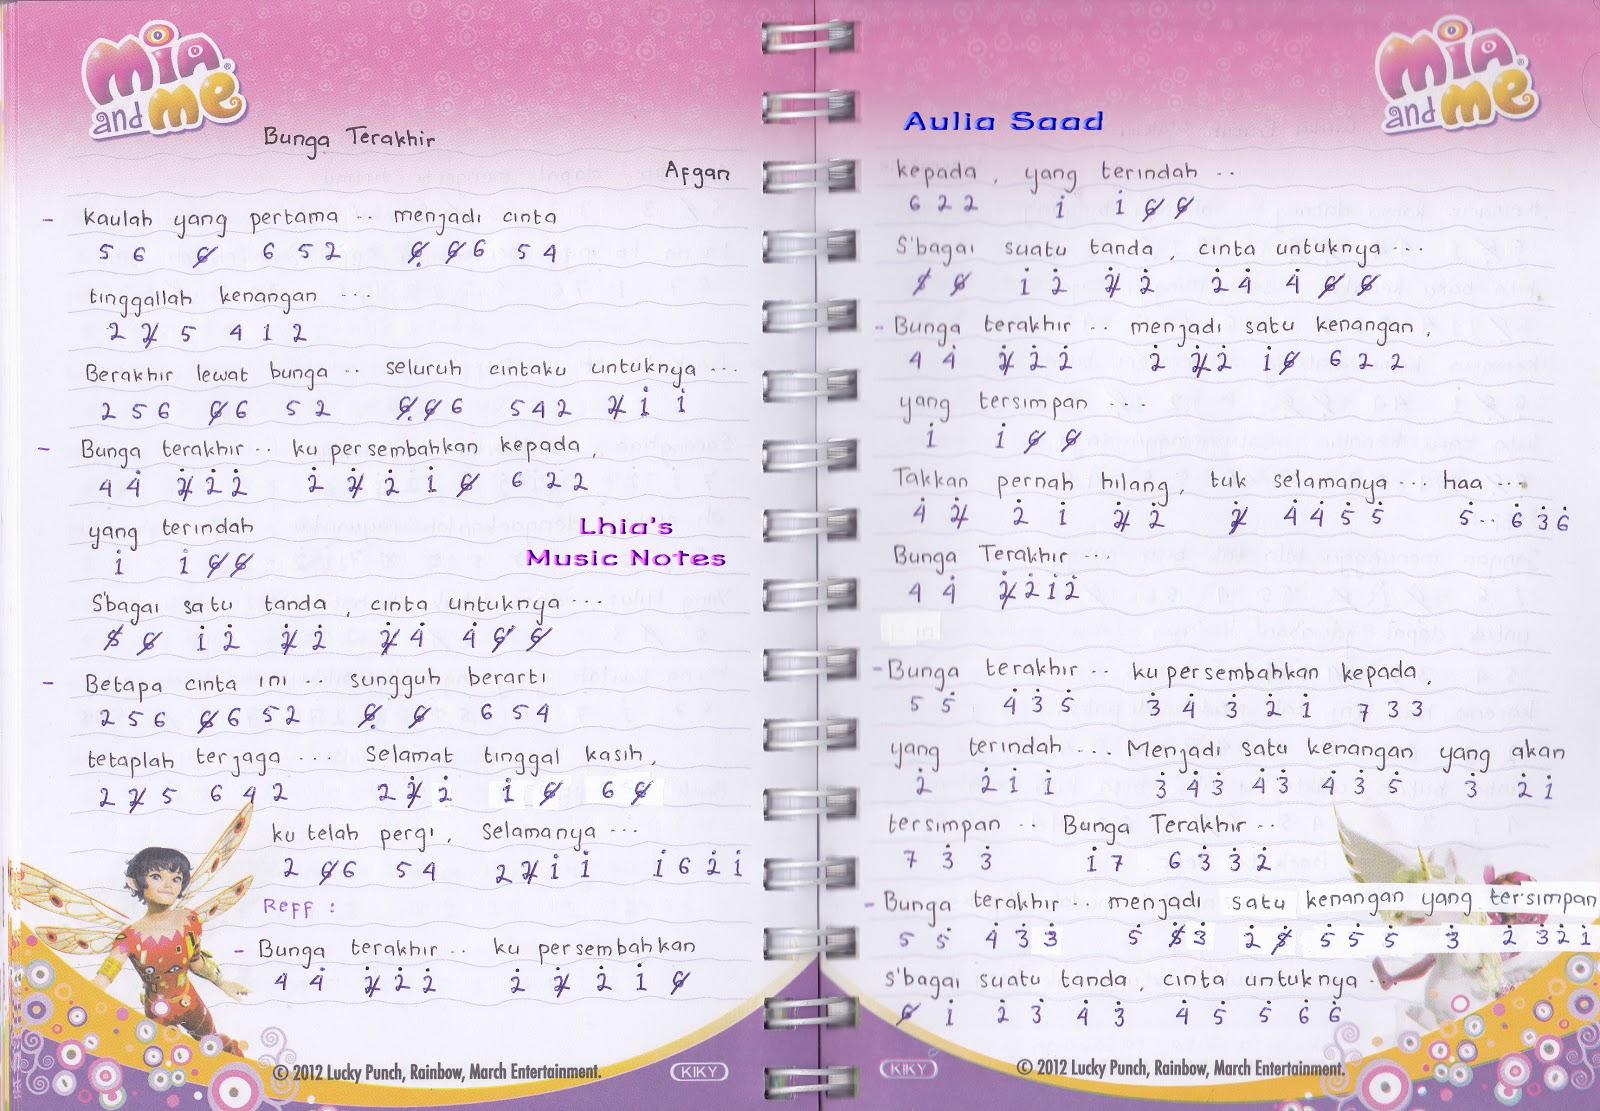 Mia and me
Bunga Terakhir
Afgan
- Kaulah yang pertama .. menjadi cinta
5 6 6̸ 6 5 2 6̸̣ 6̸ 6 5 4
tinggallah kenangan ...
2 2̸ 5 4 1 2
Berakhir lewat bunga .. seluruh cintaku untuknya ...
2 5 6 6̸ 6 5 2 6̸̣ 6̸ 6 5 4 2 2̸ 1̇ 1̇
- Bunga terakhir .. ku persembahkan kepada,
4 4̇ 2̸̇ 2̇ 2̇ 2̇ 2̸̇ 2̇ 1̇ 6̸ 6 2 2
yang terindah
1̇ 1̇ 6̸ 6̸
S'bagai satu tanda, cinta untuknya ...
5̸ 6̸ 1̇ 2̇ 2̸̇ 2̇ 2̸̇ 4̇ 4̇ 6̸ 6̸
- Betapa cinta ini .. sungguh berarti
2 5 6 6̸ 6 5 2 6̸̣ 6̸ 6 5 4
tetaplah terjaga ... Selamat tinggal kasih,
2 2̸ 5 6 4 2 2 2̸̇ 2̇ 1̇ 6̸ 6 6̸
ku telah pergi, Selamanya ...
2 6̸ 6 5 4 2 2̸ 1̇ 1̇ 1̇ 6 2̇ 1̇
Reff :
- Bunga terakhir .. ku persembahkan
4 4̇ 2̸̇ 2̇ 2̇ 2̇ 2̸̇ 2̇ 1̇ 6̸
Lhia's
Music Notes
© 2012 Lucky Punch, Rainbow, March Entertainment.
KIKY
Mia and me
Aulia Saad
kepada, yang terindah ..
6 2 2 1̇ 1̇ 6̸ 6̸
S'bagai suatu tanda, cinta untuknya ...
5̸ 6̸ 1̇ 2̇ 2̸̇ 2̇ 2̇ 4̇ 4̇ 6̸ 6̸
- Bunga terakhir .. menjadi satu kenangan,
4 4̇ 2̸̇ 2̇ 2̇ 2̇ 2̸̇ 2̇ 1̇ 6̸ 6 2 2
yang tersimpan ...
1̇ 1̇ 6̸ 6̸
Takkan pernah hilang, tuk selamanya ... haa ...
4̇ 2̸̇ 2̇ 1̇ 2̸̇ 2̇ 2̸̇ 4̇ 4̇ 5̇ 5̇ 5̇ .. 6̇ 3̇ 6̇
Bunga Terakhir ...
4 4̇ 2̸̇ 2̇ 1̇ 2̇
- Bunga terakhir .. ku persembahkan kepada,
5 5̇ 4̇ 3̇ 5̇ 3̇ 4̇ 3̇ 2̇ 1̇ 7 3 3
yang terindah ... Menjadi satu kenangan yang akan
2̇ 2̇ 1̇ 1̇ 3̇ 4̇ 3̇ 4̇ 3̇ 4̇ 3̇ 5̇ 3̇ 2̇ 1̇
tersimpan .. Bunga Terakhir ..
7 3̇ 3̇ 1̇ 7 6 3̇ 3̇ 2̇
- Bunga terakhir .. menjadi satu kenangan yang tersimpan
5 5̇ 4̇ 3̇ 3̇ 5̇ 5̸̇ 3̇ 2̇ 5̸̇ 5̇ 5̇ 5̇ 3̇ 2̇ 3̇ 2̇ 1̇
S'bagai suatu tanda, cinta untuknya ..
6̸ 1̇ 2̇ 3̇ 4̇ 3̇ 4̇ 5̇ 5̇ 6̇ 6̇
KIKY
© 2012 Lucky Punch, Rainbow, March Entertainment.